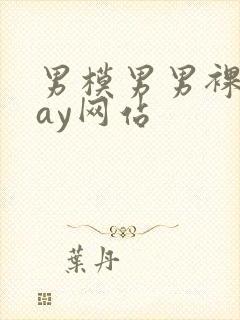 男模男男裸
ay网站
葉丹